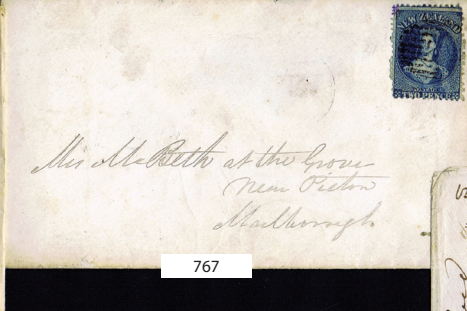 NEW ZEALAND
POSTAGE
TWO PENCE
Mis McBeth at the Grove
Near Picton
Marlborough
767